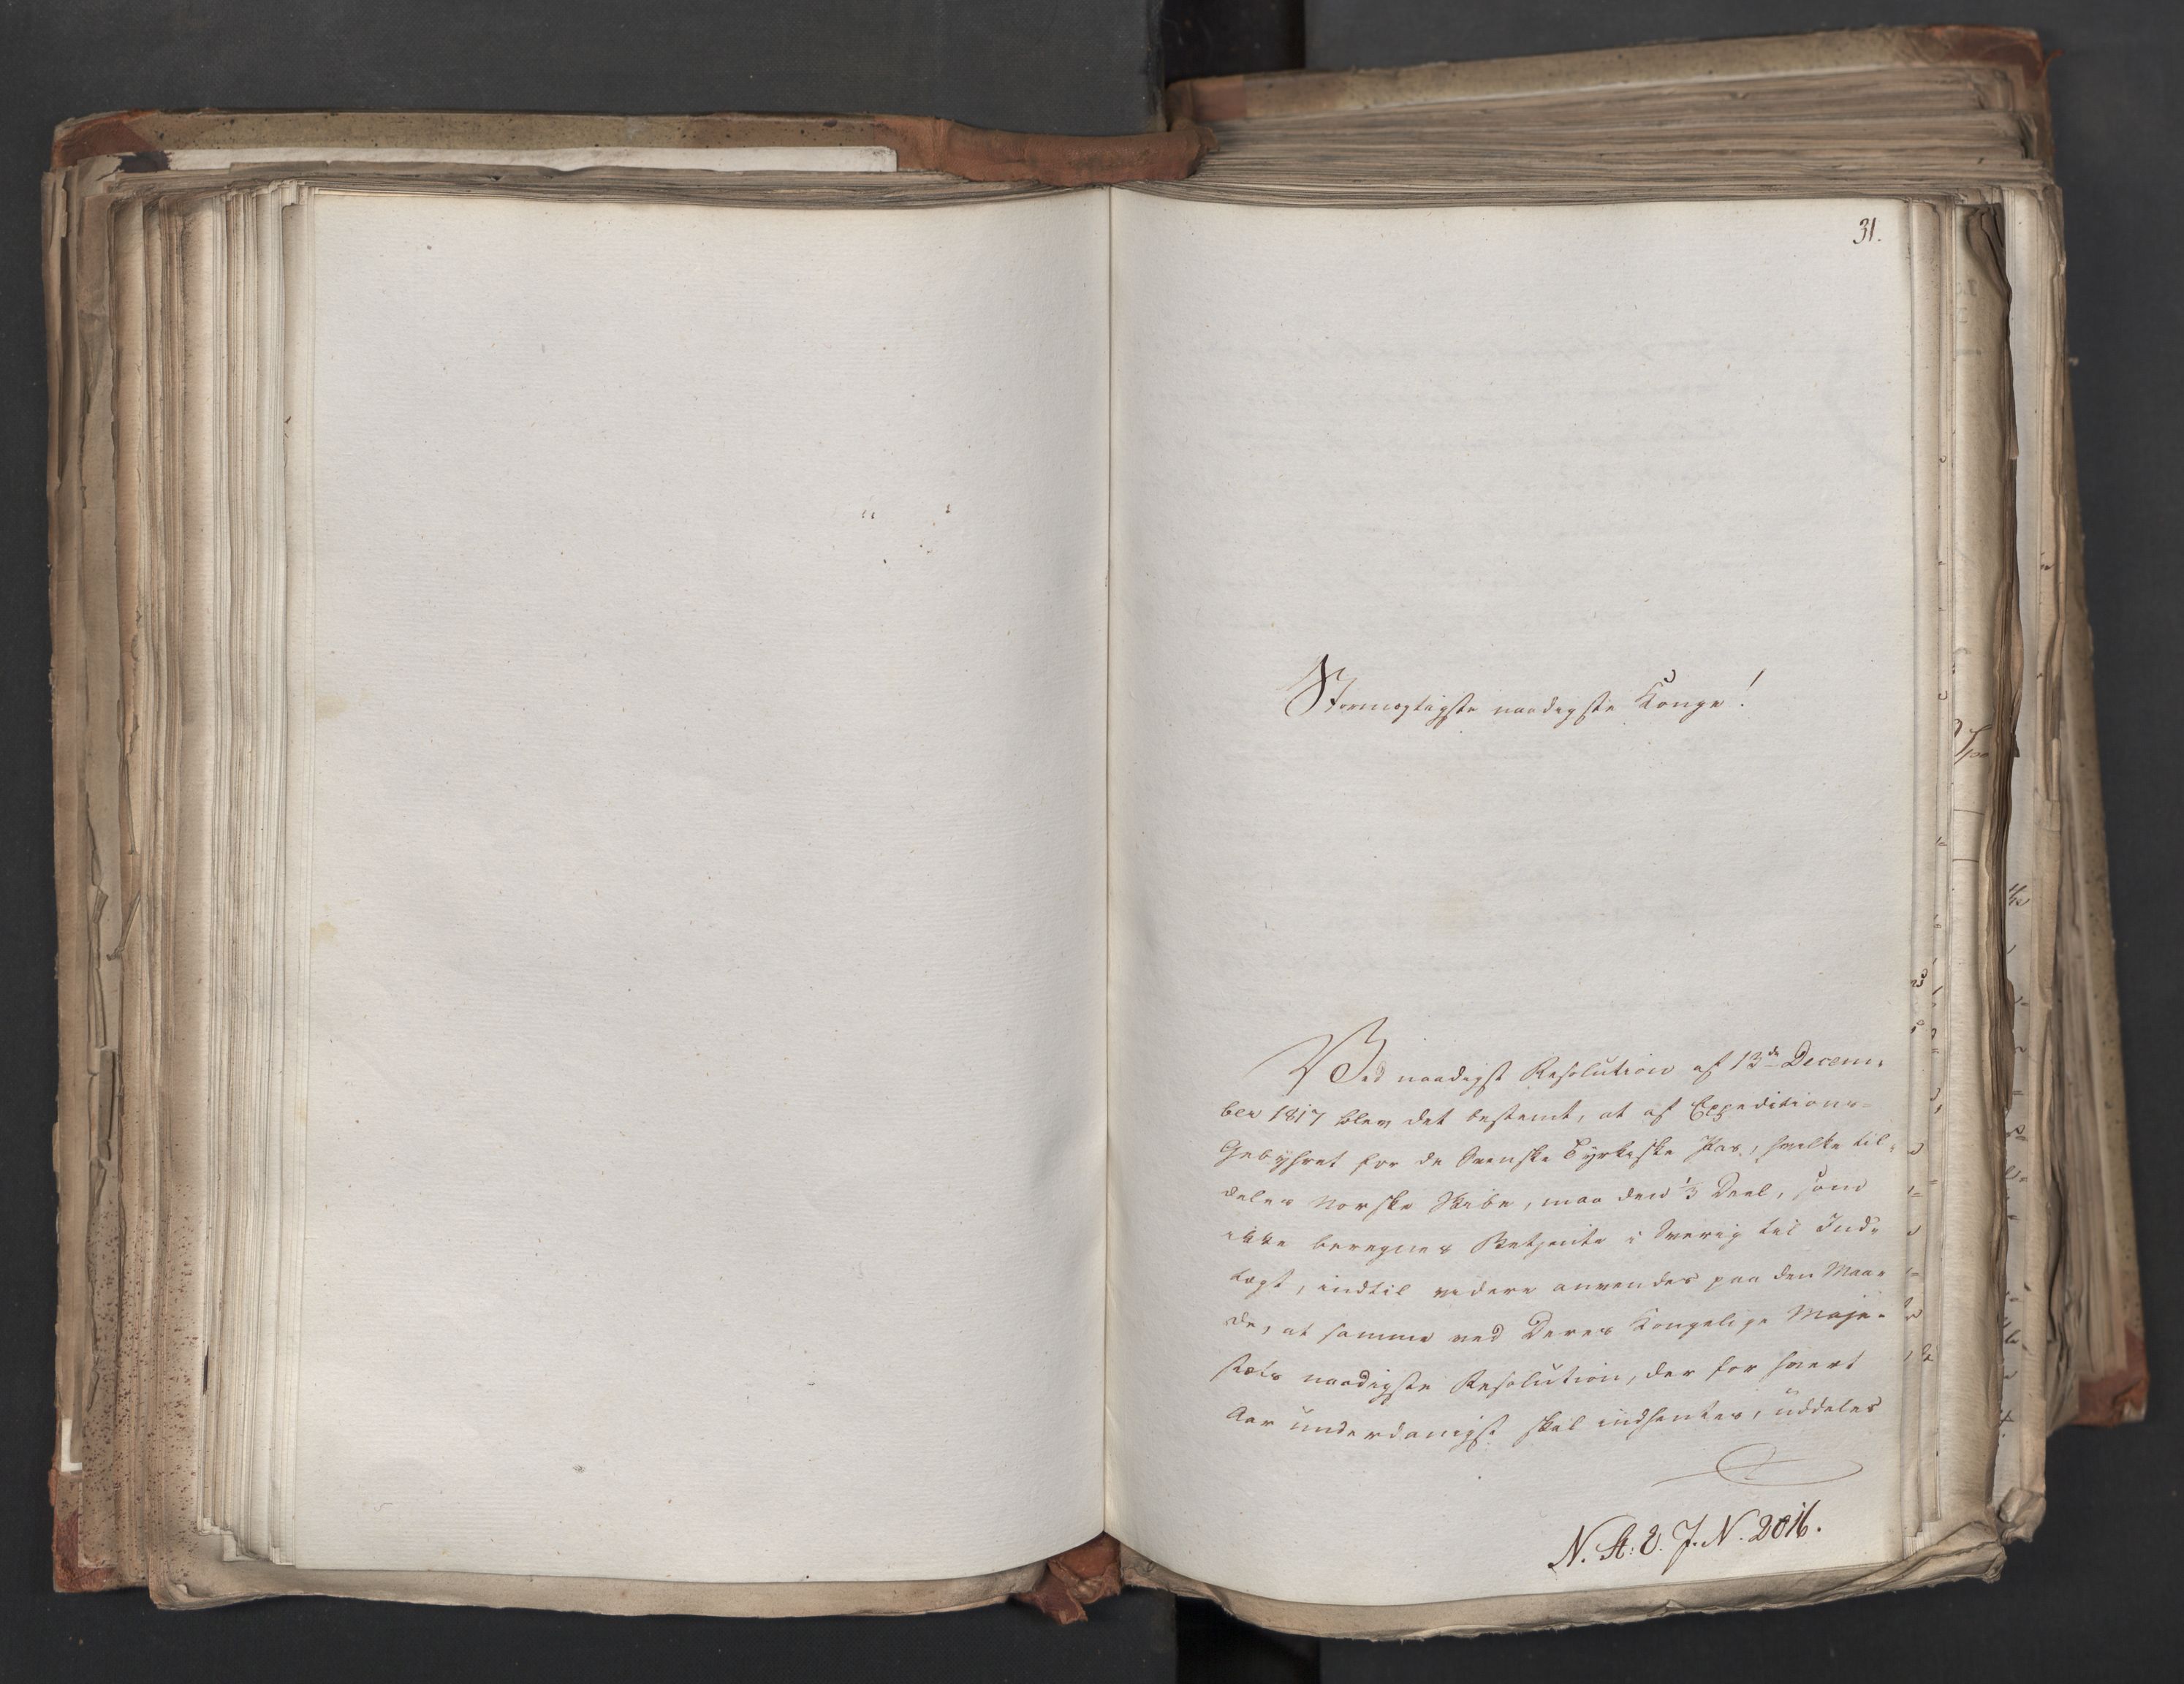 31.
Stormægtigste naadigste Konge!
Ved naadigst Resolution af 13de Decem-
ber 1817 blev det bestemt, at af Expeditions-
Gebyhret for de Svenske Tyrkiske Pas, hvilke til-
deles Norske Skibe, maa den 1/3 Deel, som
ikke beregnes Betjente i Sverig til Ind-
tægt, indtil videre anvendes paa den Maa-
de, at samme ved Deres Kongelige Maje-
stæts naadigste Resolution, der for hvert
Aar underdanigst skal indhentes, uddeles
N. St: E. J. N. 2016.